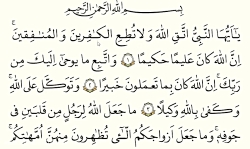 بِسْمِ ٱللَّهِ ٱلرَّحْمَٰنِ ٱلرَّحِيمِ
يَٰٓأَيُّهَا ٱلنَّبِىُّ ٱتَّقِ ٱللَّهَ وَلَا تُطِعِ ٱلْكَٰفِرِينَ وَٱلْمُنَٰفِقِينَ ۗ
إِنَّ ٱللَّهَ كَانَ عَلِيمًا حَكِيمًا ١ وَٱتَّبِعْ مَا يُوحَىٰٓ إِلَيْكَ مِن
رَّبِّكَ ۚ إِنَّ ٱللَّهَ كَانَ بِمَا تَعْمَلُونَ خَبِيرًا ٢ وَتَوَكَّلْ عَلَى ٱللَّهِ ۚ
وَكَفَىٰ بِٱللَّهِ وَكِيلًا ٣ مَّا جَعَلَ ٱللَّهُ لِرَجُلٍ مِّن قَلْبَيْنِ فِى
جَوْفِهِۦ ۚ وَمَا جَعَلَ أَزْوَٰجَكُمُ ٱلَّٰٓـِٔى تُظَٰهِرُونَ مِنْهُنَّ أُمَّهَٰتِكُمْ ۚ